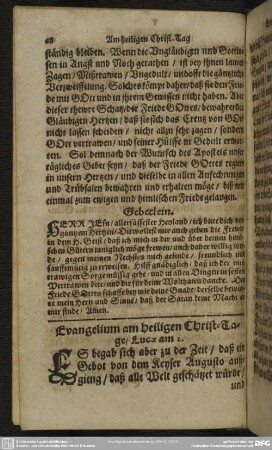 68 Am heiligen Christ-Tag
ständig bleiben. Wenn die Ungläubigen und Gottlo-
sen in Angst und Noth gerathen / ist bey ihnen lauter
Zagen / Mißtrawen / Ungedult / und offt die gäntzliche
Verzweiffelung. Solches kömpt daher / daß sie den Frie-
de mit GOtt und in ihrem Gewissen nicht haben. Aber
dieser thewre Schatz / die Friede GOttes / bewahret die
Gläubigen Hertzen / daß sie sich das Creutz von GOtt
nicht lassen scheiden / nicht allzu sehr zagen / sondern
GOtt vertrawen / und seiner Hülffe in Gedult erwar-
ten. Sol demnach der Wunsch des Apostels unser
tägliches Gebet seyn / daß der Friede GOttes regiere
in unsern Hertzen / und dieselbe in allen Anfechtungen
und Trübsalen bewahren und erhalten möge / biß wir
einmal zum ewigen und himlischen Friede gelangen.
Gebetlein.
HERR JEsu / allersüssester Heyland / ich bitte dich von
gantzem Hertzen / Du wollest mir auch geben die Freude
in dem H. Geist / daß ich mich in dir und über deinen himli-
schen Gütern
freundlich und
sanfftmütig zu erweisen. Hilff gnädiglich / daß ich der
und in allen Dingen in festem
Vertrawen
Friede GOttes
ne mein Hertz und Sinne / daß der Satan seine Macht an
mir finde / Amen.
Evangelium am heiligen Christ-Ta-
ge / Luc. am 2.
ES begab sich aber zu der Zeit / daß ein
Gebot von dem Keyser Augusto auß-
gieng / daß alle Welt geschätzt würde /
und